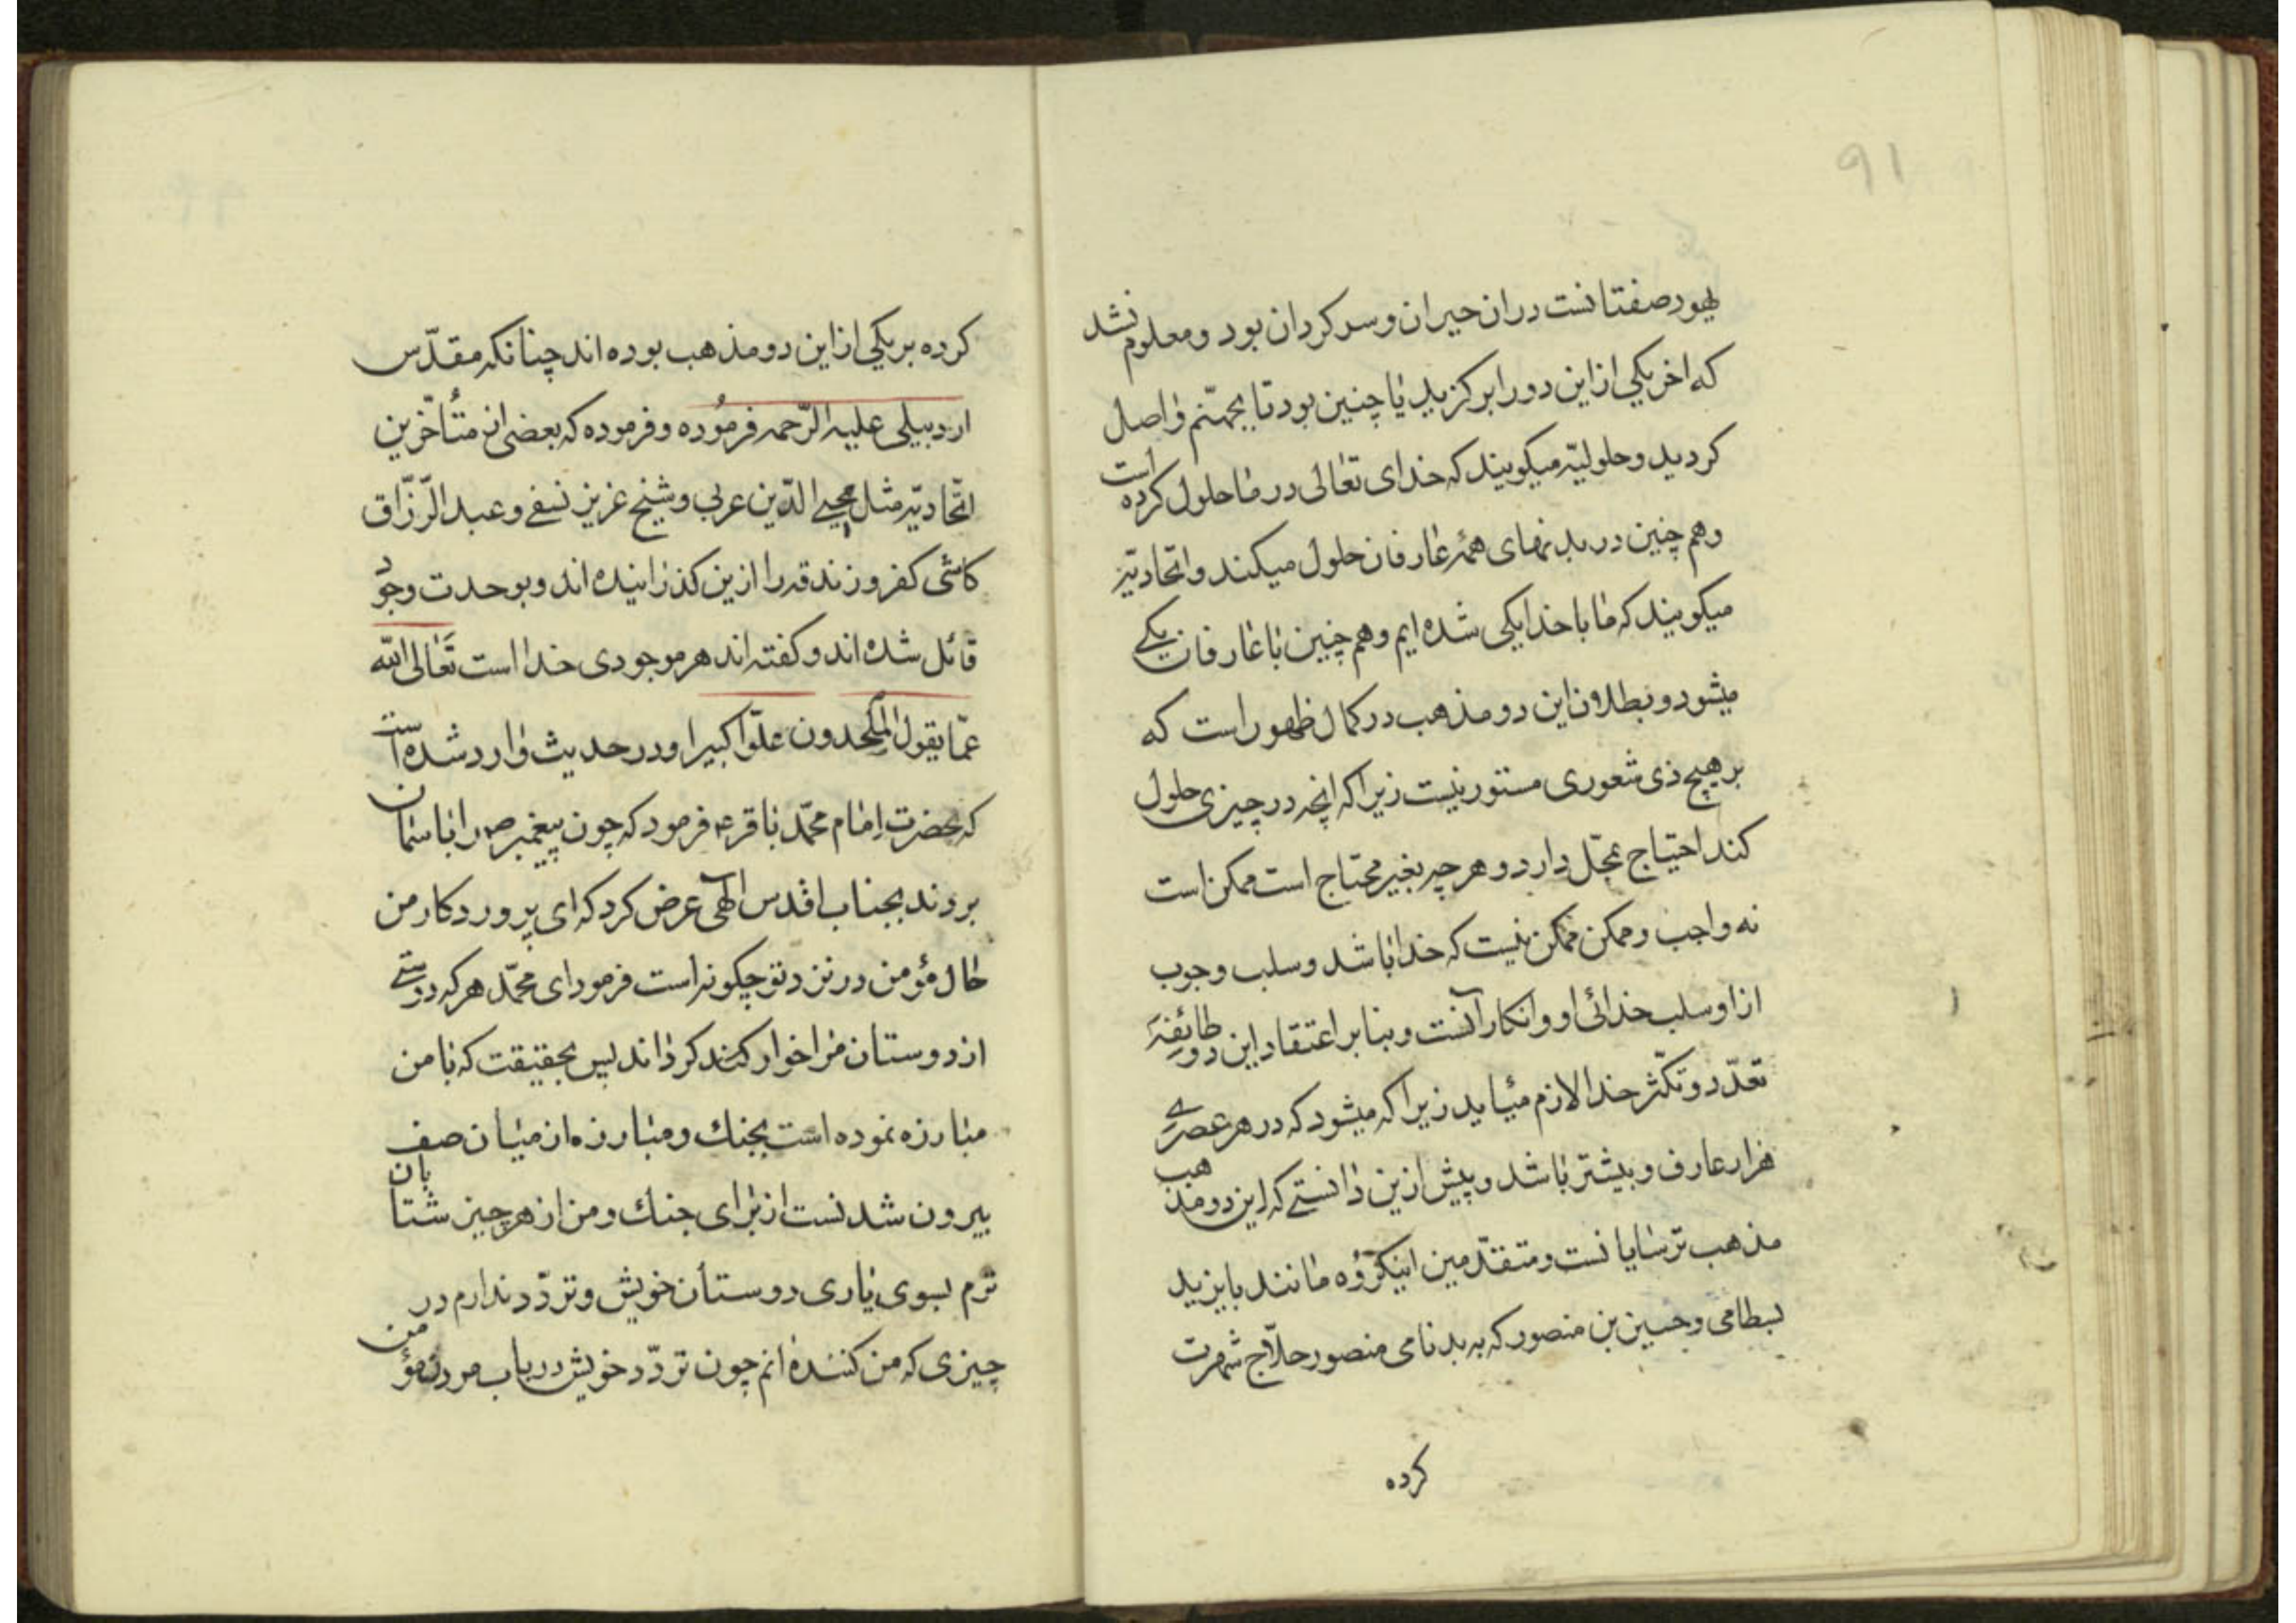 ۹۱
یهود صفتانست دران حیران و سرکردان بود و معلوم نشد
که اخر یکی از این دو را برکزید یا چنین بود تا بجهنّم واصل
کردید و حلولیّه میکویند که خدای تعالی در ما حلول کرده است
و هم چنین در بدنهای همهٔ عارفان حلول میکند و اتّحادیّه
میکویند که ما با خدا یکی شده ایم و هم چنین با عارفان یکے
میشود و بطلان این دو مذهب در کمال ظهور است که
بر هیچ ذی شعوری مستور نیست زیرا که انچه در چیزی حلول
کند احتیاج بمحّل دارد و هر چه بغیر محتاج است ممکن است
نه واجب و ممکن ممکن نیست که خدا باشد و سلب وجوب
از او سلب خدائی او و انکار آنست و بنا بر اعتقاد این دو طایٔفهٔ
تعدّد و تکثّر خدا لازم میٔاید زیرا که میشود که در هر عصرے
هزار عارف و بیشتر باشد و پیش ازین دانستے که این دو مذهب
مذهب ترسایانست و متقدّمین اینکرؤه مانند بایزید
بسطامی و حسین بن منصور که به بدنامی منصور حلاّج شهرت
کرده
کرده بر یکی از این دو مذهب بوده اند چنانکه مقدّس
اردبیلی علیه الرّحمه فرموُده و فرموده که بعضی از متأخّرین
اتّحادیّه مثل محیی الدّین عربی و شیخ عزیز نسفے و عبد الرّزّاق
کاشی کفر و زندقه را ازین کذرانیده اند و بوحدت وجود
قائل شده اند و کفته اند هر موجودی خدا است تَعٰالی الله
عمّا یقول الملحدون علّواً کبیرا و در حدیث وارد شده است
که حضرت اِمام محمّد باقر ع فرمود که چون پیغمبر ص را باسمان
بردند بجناب اقدس الهی عرض کرد که ای پروردکار من
حال مؤمن در نزد تو چکونه است فرمود ای محمّد هر که دوستے
از دوستان مرا خوار کند کرداند پس بحقیقت که با من
مبارزه نموده است بجنك و مبارزه از میان صف
بیرون شدنست از برای جنك و من از هر چیز شتابان
ترم بسوی یاری دوستان خویش و تردّد ندارم در
چیزی که من کنندهٔ انم چون تردّد خویش در باب مردن مؤمن